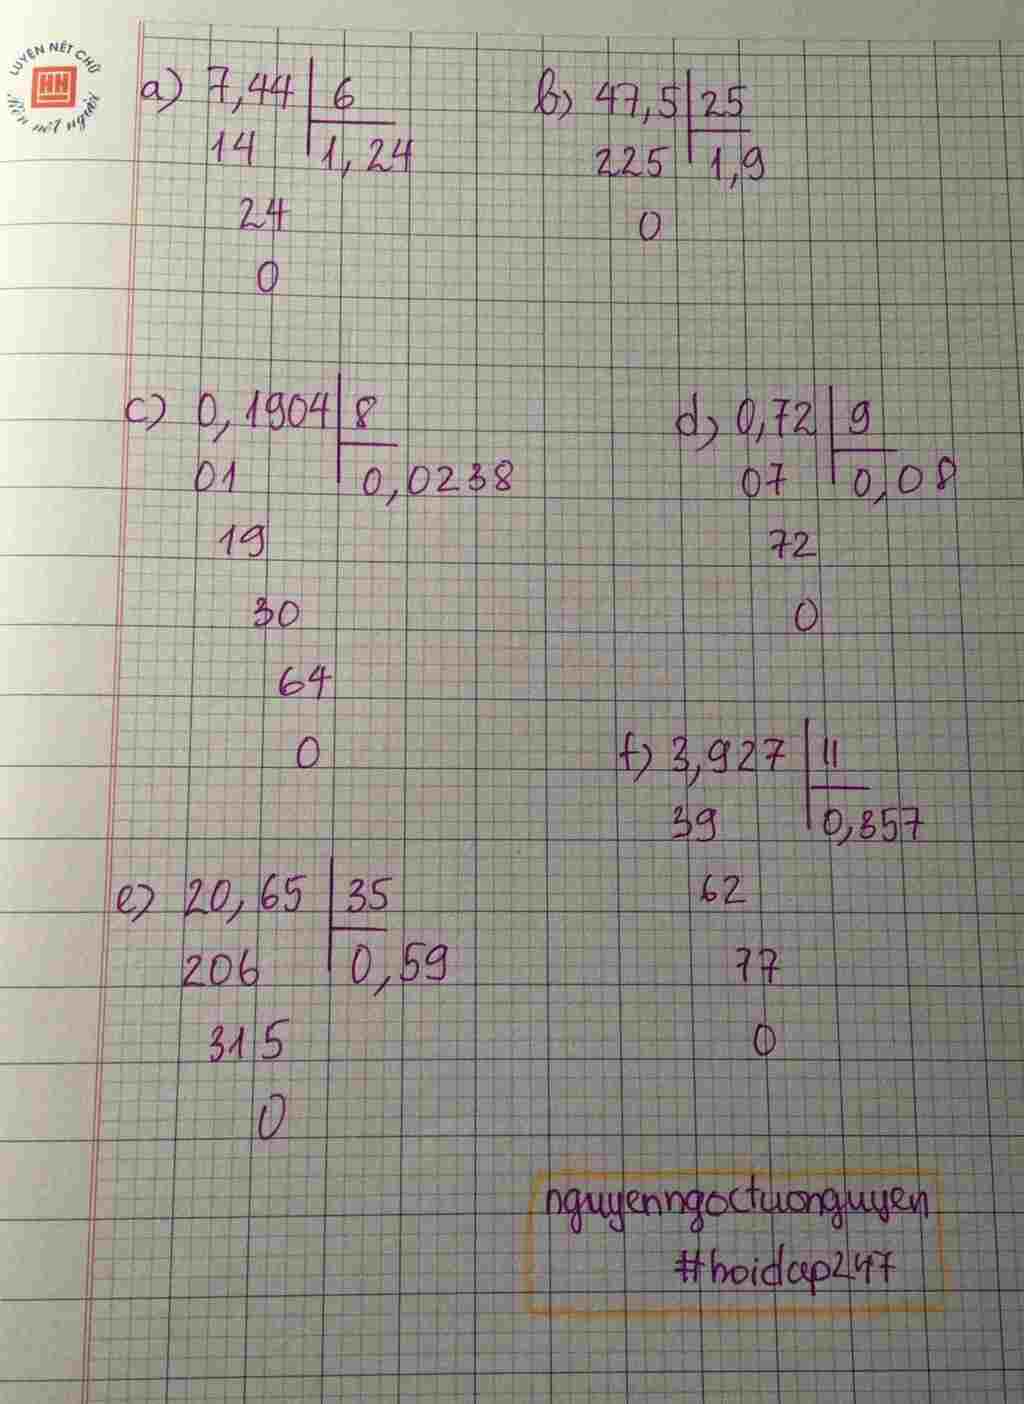 LUYỆN NÉT CHỮ
HN
Rèn nết người
a) 7,44 6
14 1,24
24
0
b) 47,5 25
225 1,9
0
c) 0,1904 8
01 0,0238
19
30
64
0
d) 0,72 9
07 0,08
72
0
e) 20,65 35
206 0,59
315
0
f) 3,927 11
39 0,357
62
77
0
nguyenngoctuonguyen
#hoidap247